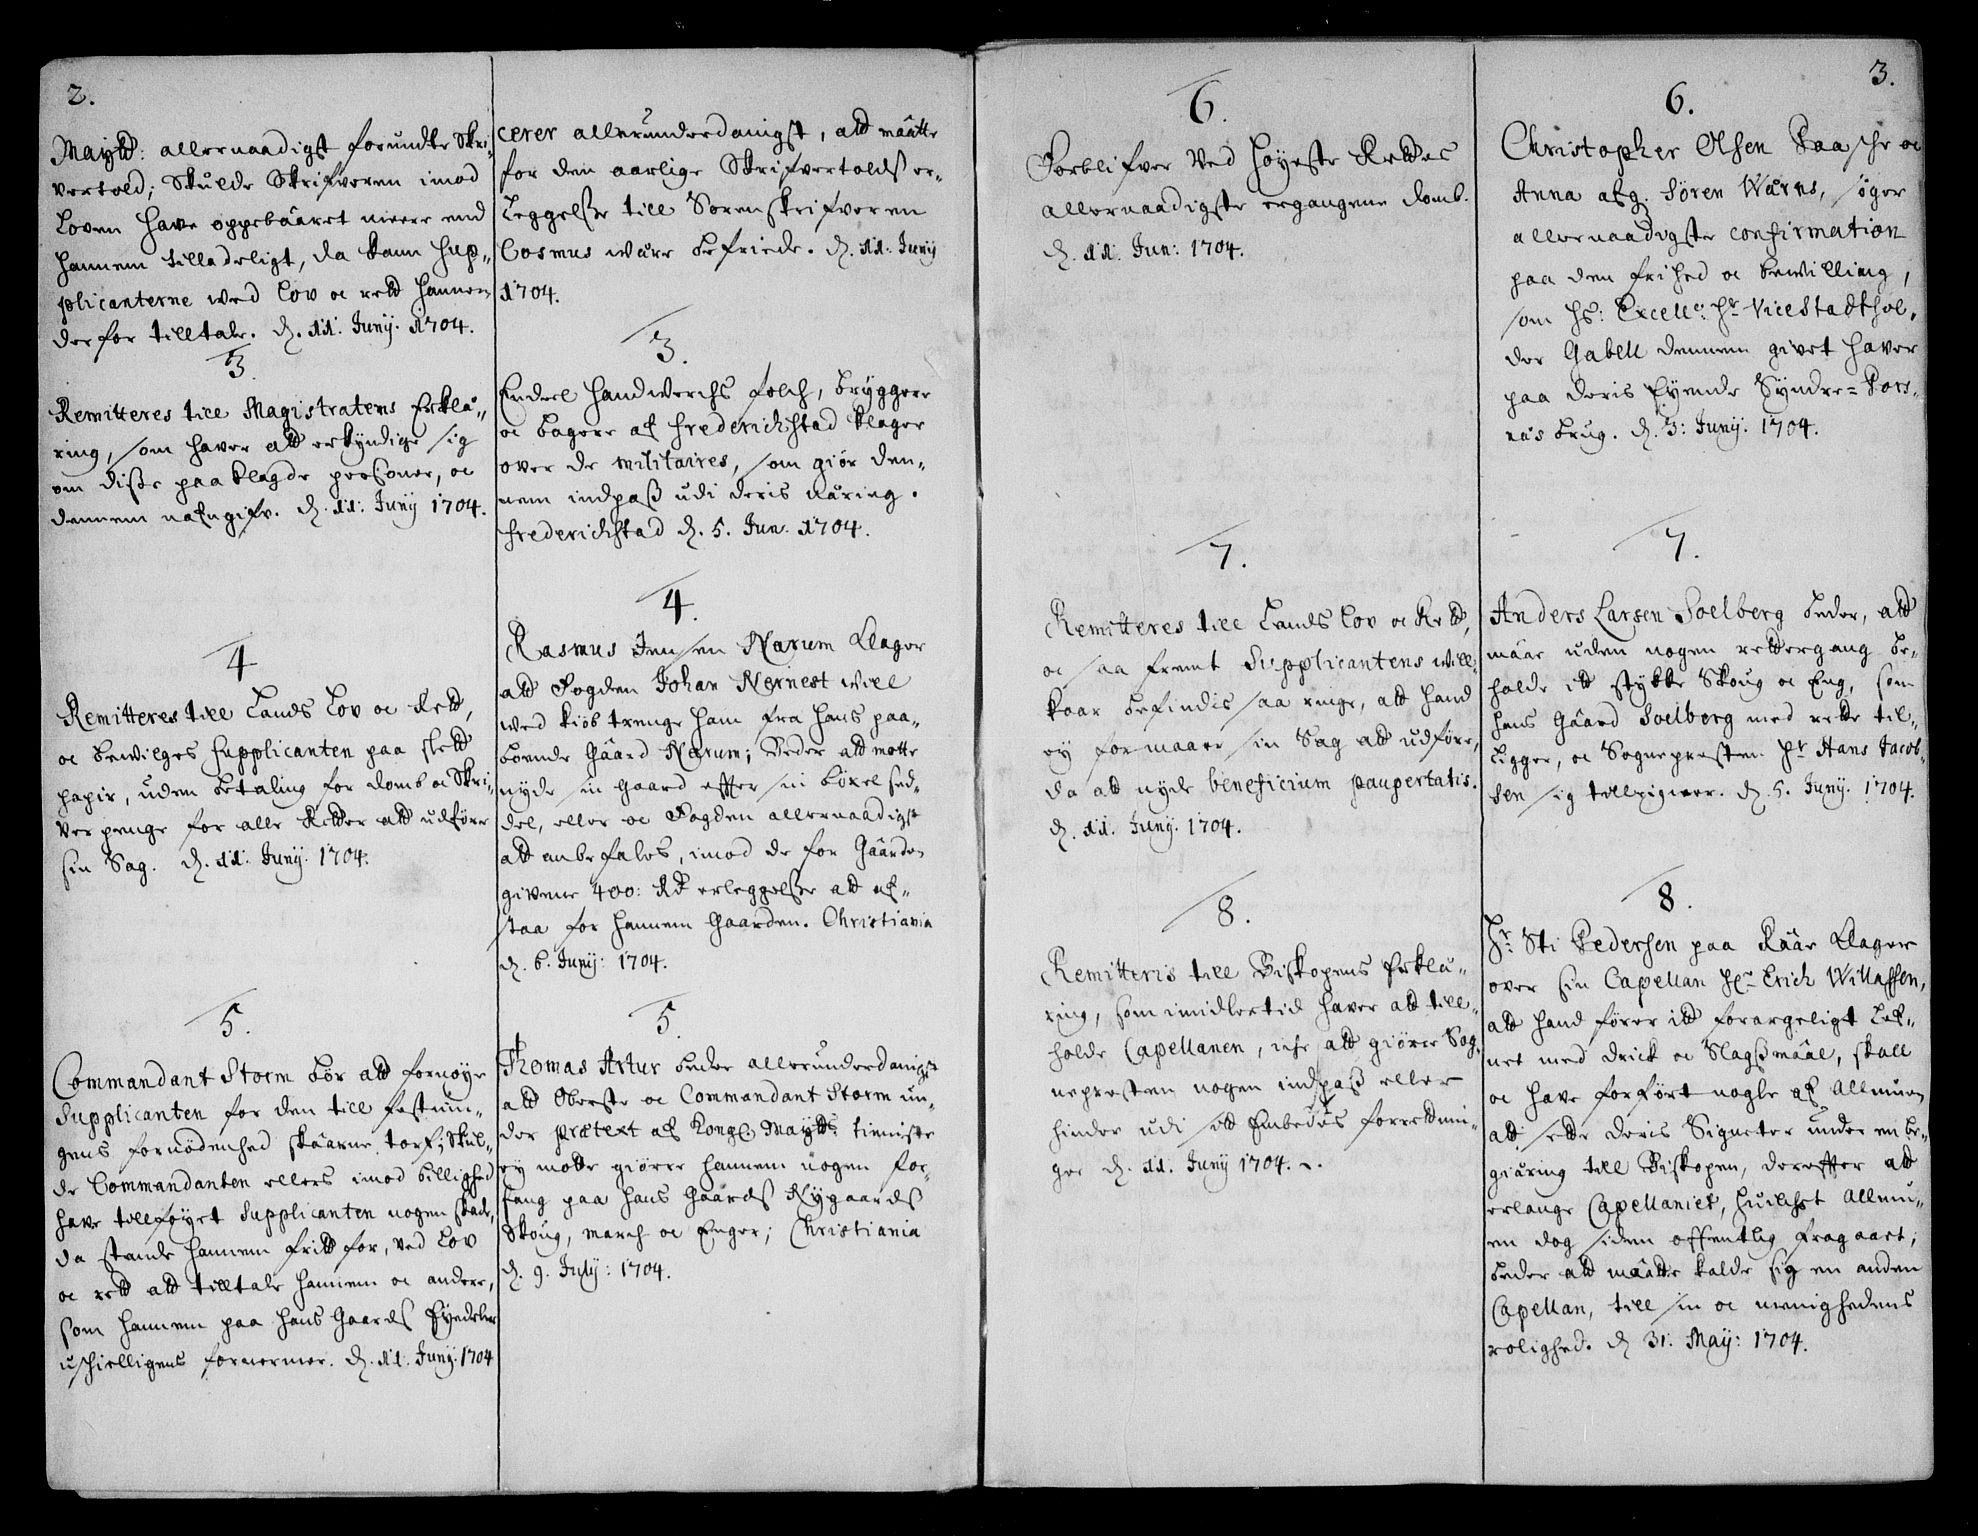 2.
Maytt: allernaadigst forundte Skri-
vertold; Skulde Skrifveren imod
Loven have oppebåaret meere end
hannem tilladeligt, da kand Sup-
plicanterne wed Lov oc rett hannem
derfor tilltale. d. 11: Junij. 1704.
3.
Remitteres till Magistratens Erklä-
ring, som haver att erkyndige sig
om disse paaklagde personer, oc
dennem nafngifv. d. 11: Junij 1704.
4
Remitteres till Lands Lov oc Rett,
oc bewilges Supplicanten paa slett
papir, uden betaling for domb oc Skri-
verpenge for alle Retter att udføre
sin Sag. d. 11: Junij. 1704.
5.
Commandant Storm bör att fornøye
Supplicanten for den till fæstnin-
gens fornødenhed skaarne torf; Skul-
de Commandanten ellers imod billighed
have tillføyet Supplicanten nogen skade,
da stande hannem fritt for, ved Lov
oc rett att tilltale hannem oc andere,
som hannem paa hans Gaards Eyendeler
uschielligens fornermer. d. 11: Junij. 1704
cerer allerunderdanigst, att måatte
for den aarlige Skrifvertolds er-
leggelsse till Sorenskrifveren
Cosmus wäre befriede. d. 11: Junij
1704.
3.
Endeel Handwerchs folch, bryggere
oc bagere af Frederichstad klager
over de militaires, som giör den-
nem indpass udi deris näring.
Frederichstad d. 5. Jun. 1704.
4.
Rasmus Jensen Narum klager
att Fogden Johan Nørnest will
wed kiöb trenge ham fra hans paa-
boende Gåard Narum; Beder att motte
nyde sin Gaard effter sin böxelsed-
del, eller oc Fogden allernaadigst
att anbefales, imod de for Gåarden
givene 400: Rdr erleggelsse att af-
staa for hannem Gaarden. Christiania
d. 6. Junij: 1704.
5.
Thomas Artur beder allerunderdanigst
att Oberste oc Commandant Storm un-
der prætext af Kongl. Maytts tienniste
ey motte giörre hannem nogen for-
fang paa hans Gaards Rygaards
Skoug, march oc Enger; Christiania
d. 9. July: 1704.
6.
Forblifver Ved Høyeste Rettes
allernaadigste ergangene domb.
d. 11: Jun: 1704.
7.
Remitteres till Lands Lov oc Rett,
oc saa fremt Supplicantens will-
kaar befindis saa ringe, att hand
ey formaaer sin Sag att udføre,
da att nyde beneficium paupertatis.
d. 11. Junij. 1704.
8.
Remitteris till Biskopens Erklä-
ring, som imidlertid haver att till-
holde Capellanen, iche att giörre Sog-
nepresten nogen indpass eller
hinder udi sitt Embedes forrettnin-
ger d. 11. Junij 1704.
3.
6.
Christopher Olsen Paasche oc
Anna afg. Søren Wärns, søger
allernaadigste confirmation
paa den frihed oc bewilling,
som Hs: Excell: Hr Vice Stadthol-
der Gabell dennem givet haver
paa deris Eyende Syndre-Pors-
näs brug. d. 3: Junij. 1704.
7.
Anders Larsen Soelberg beder, att
måae uden nogen rettergang be-
holde itt stykke Skoug oc Eng, som
hans Gåard Soelberg med rette til-
ligger, oc Sognepresten Hr Hans Jacob-
sen sig tillegner. d. 5. Junij. 1704.
8.
Hr. Sti Pedersen paa Råår klager
over sin Capellan Hr. Erich Willassen,
att hand fører itt forargeligt Lef-
net med drick oc Slagsmåal, skall
oc have forført nogle af Allmuen
att sette deris Signeter under en be-
giäring till Biskopen, dereffter att
erlange Capellaniet, huilchet Allmu-
en dog siden offentlig fragaaet;
beder att måatte kalde sig en anden
Capellan, till sin oc menighedens
rolighed. d 31. May: 1704.